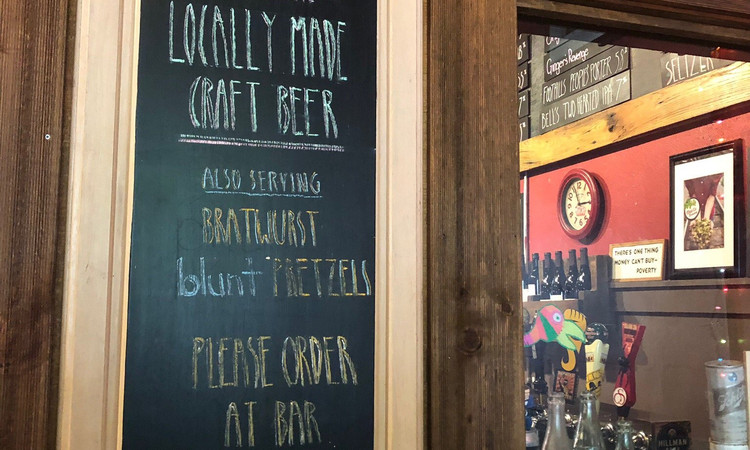 LOCALLY MADE
CRAFT BEER
ALSO SERVING
BRATWURST
blunt PRETZELS
PLEASE ORDER
AT BAR
Ginger's Revenge
FOOTHILLS PEOPLE'S PORTER 5.5
BELL'S TWO HEARTED IPA 7%
SELTZER
THERE'S ONE THING
MONEY CAN'T BUY-
POVERTY
HILLMAN